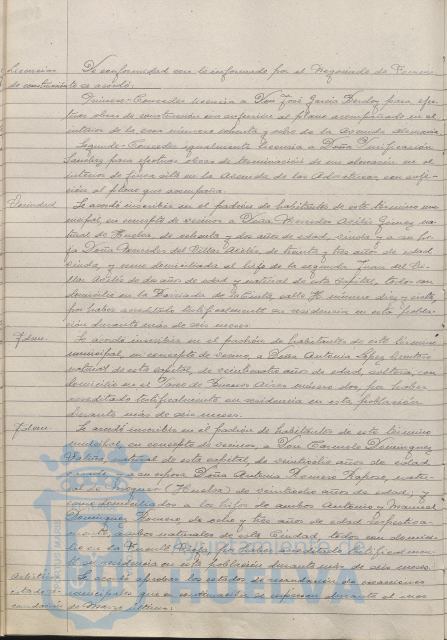 Licencias De conformidad con lo informado por el Negociado de Fomento
de construcción se acordó:
Primero- Conceder licencia a Don José García para efec-
tuar obras de construcción con sujeción al plano acompañado en el
interior de la casa número ochenta y ocho de la Avenida Alemania
Segundo- Conceder igualmente licencia a Doña Purificación
Sánchez para efectuar obras de terminación de un almacén en el
interior de finca sita en la Avenida de los Adoratrices con suje-
ción al plano que acompaña.
Vecindad Se acordó inscribir en el padrón de habitantes de este término mu-
nicipal, en concepto de vecinos a Doña Mercedes Avilés Gómez na-
tural de Huelva, de setenta y dos años de edad, viuda y a su hi-
ja Doña Mercedes del Villar Avilés, de treinta y tres años de edad
viuda, y como domiciliado al hijo de la segunda Juan del Vi-
llar Avilés de dos años de edad y natural de esta capital, todos con
domicilio en la Barriada de calle H número diez y siete,
por haber acreditado testificalmente su residencia en esta pobla-
ción durante más de seis meses.
Idem. Se acordó inscribir en el padrón de habitantes de este término
municipal, en concepto de vecino, a Don Antonio López
natural de esta capital, de veinticuatro años de edad, soltero, con
domicilio en el Paseo de Buenos Aires número dos, por haber
acreditado testificalmente su residencia en esta población
durante más de seis meses.
Idem. Se acordó inscribir en el padrón de habitantes de este término
municipal, en concepto de vecinos, a Don Carmelo Domínguez
natural de esta capital, de veintiocho años de edad
y a su esposa Doña Antonia Romero Raposo, natu-
ral de Moguer (Huelva) de veintiocho años de edad, y
como domiciliados a los hijos de ambos Antonio y Manuel
Domínguez Romero, de ocho y tres años de edad respectiva-
mente, ambos naturales de esta Ciudad, todos con domici-
lio en la Fuente Vieja, por haber acreditado testificalmen-
te su residencia en esta población durante más de seis meses.
Arbitrios Se acordó aprobar los estados de recaudación de exacciones
estado re- municipales que a continuación se expresan durante el mes
caudación de Marzo último:
HUELVA